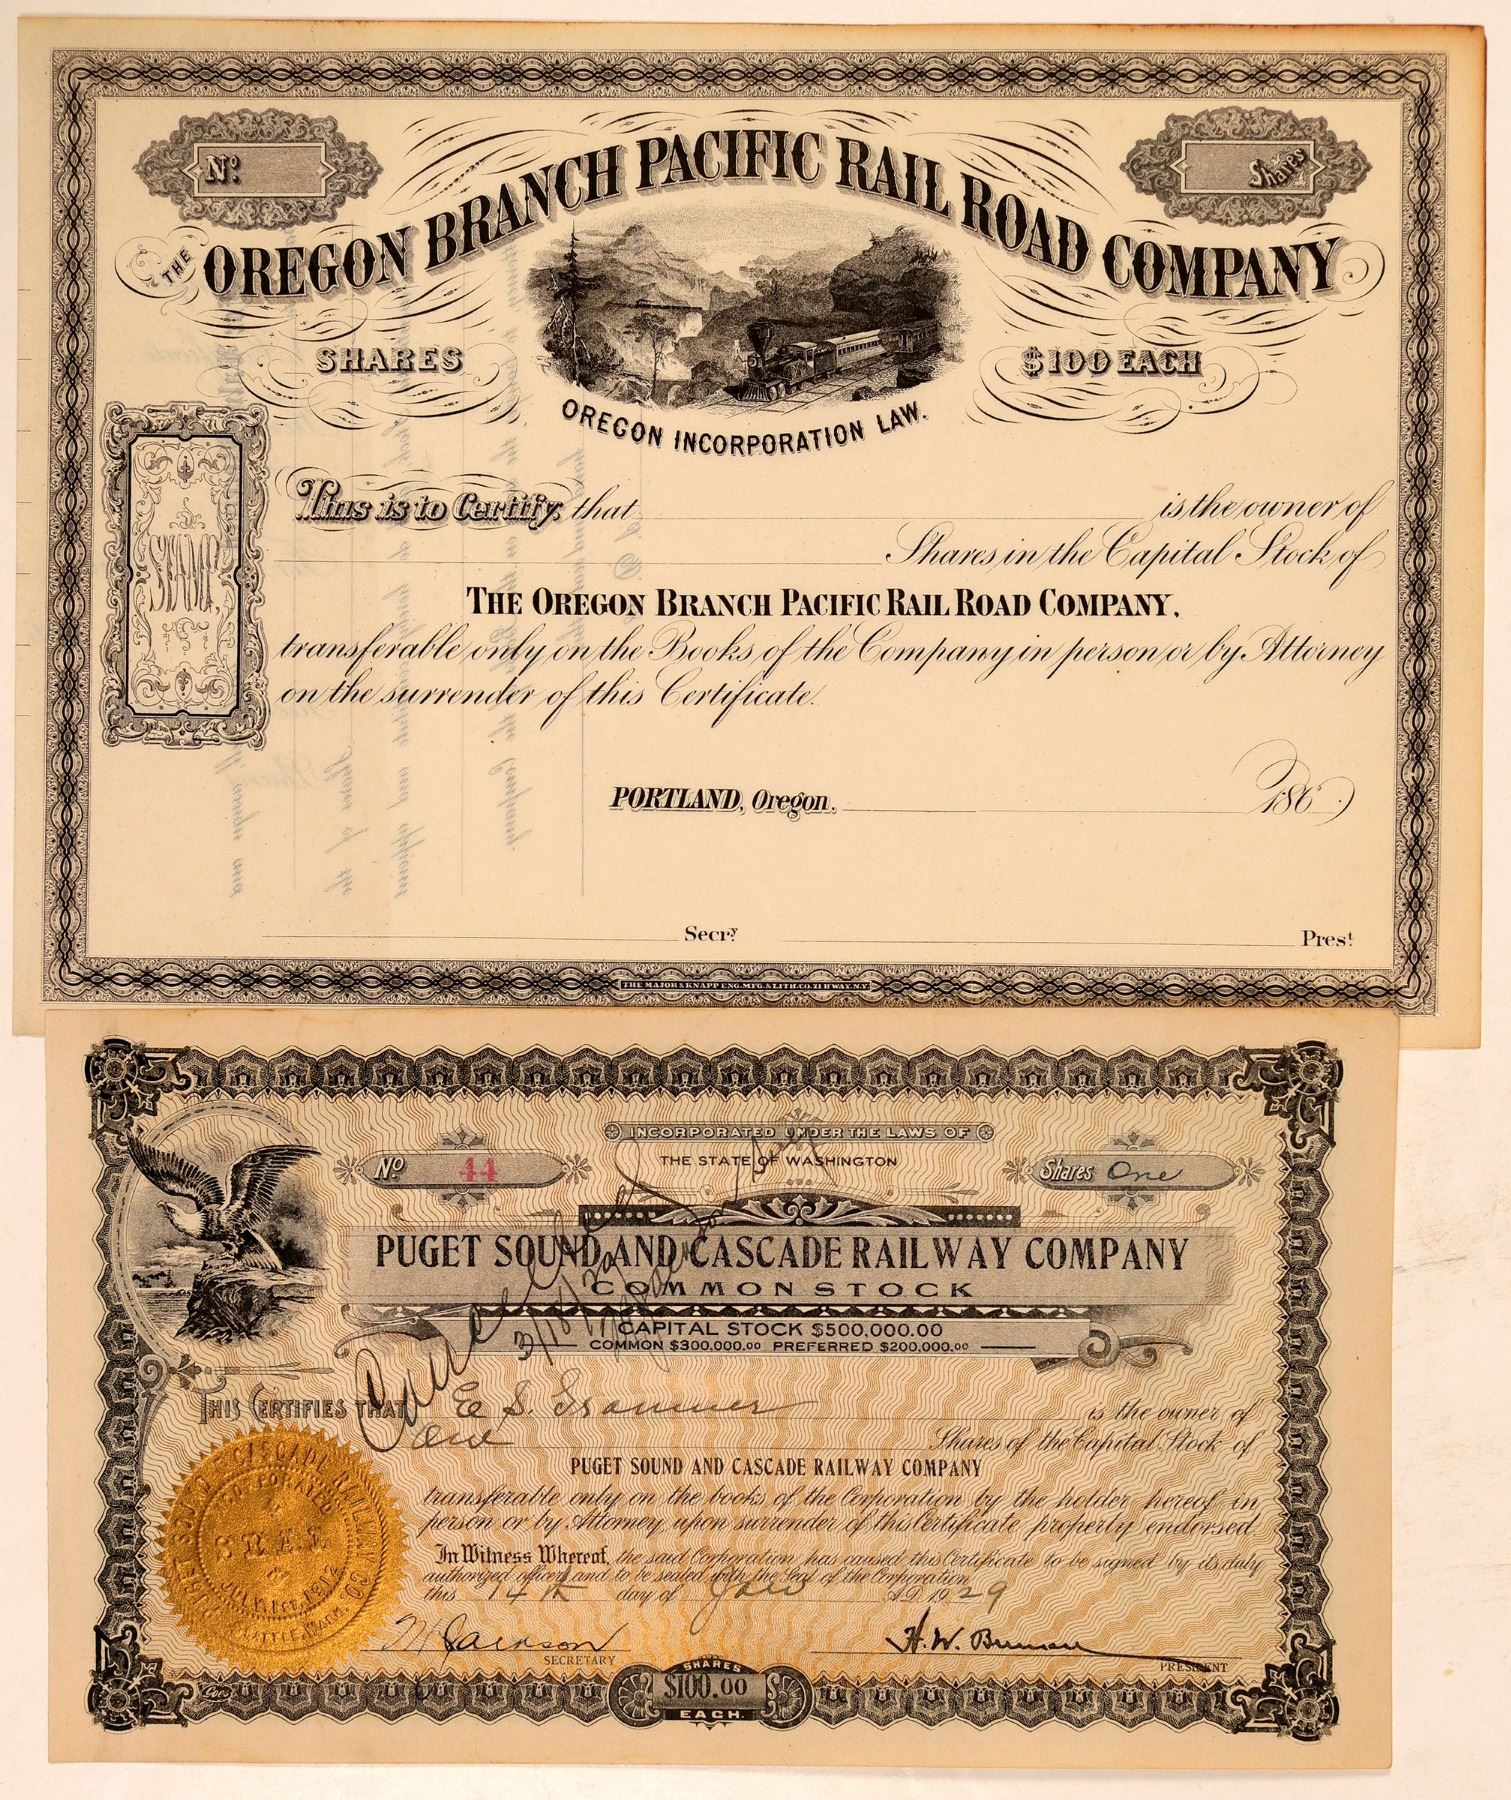 Nº.
Shares
THE OREGON BRANCH PACIFIC RAIL ROAD COMPANY
SHARES
$100 EACH
OREGON INCORPORATION LAW.
STAMP
This is to Certify, that is the owner of
Shares in the Capital Stock of
THE OREGON BRANCH PACIFIC RAIL ROAD COMPANY,
transferable only on the Books of the Company in person or by Attorney
on the surrender of this Certificate.
PORTLAND, Oregon. 186
Secry. Prest.
THE MAJOR & KNAPP ENG. MFG. & LITH. CO. 71 BWAY. N.Y.
INCORPORATED UNDER THE LAWS OF
THE STATE OF WASHINGTON
No 44
Shares One
PUGET SOUND AND CASCADE RAILWAY COMPANY
COMMON STOCK
CAPITAL STOCK $500,000.00
COMMON $300,000.00 PREFERRED $200,000.00
Cancelled
3/18/30
THIS CERTIFIES THAT E S. Grammer is the owner of
One Shares of the Capital Stock of
PUGET SOUND AND CASCADE RAILWAY COMPANY
transferable only on the books of the Corporation by the holder hereof in
person or by Attorney, upon surrender of this Certificate properly endorsed.
In Witness Whereof, the said Corporation has caused this Certificate to be signed by its duly
authorized officers and to be sealed with the Seal of the Corporation
this 14th day of Jan A.D. 1929
SECRETARY
H. W.
PRESIDENT
PUGET SOUND & CASCADE RAILWAY CO.
INCORPORATED
SEAL
JULY, 1ST, 1912
SEATTLE, WASH.
Goes
SHARES
$100.00
EACH.